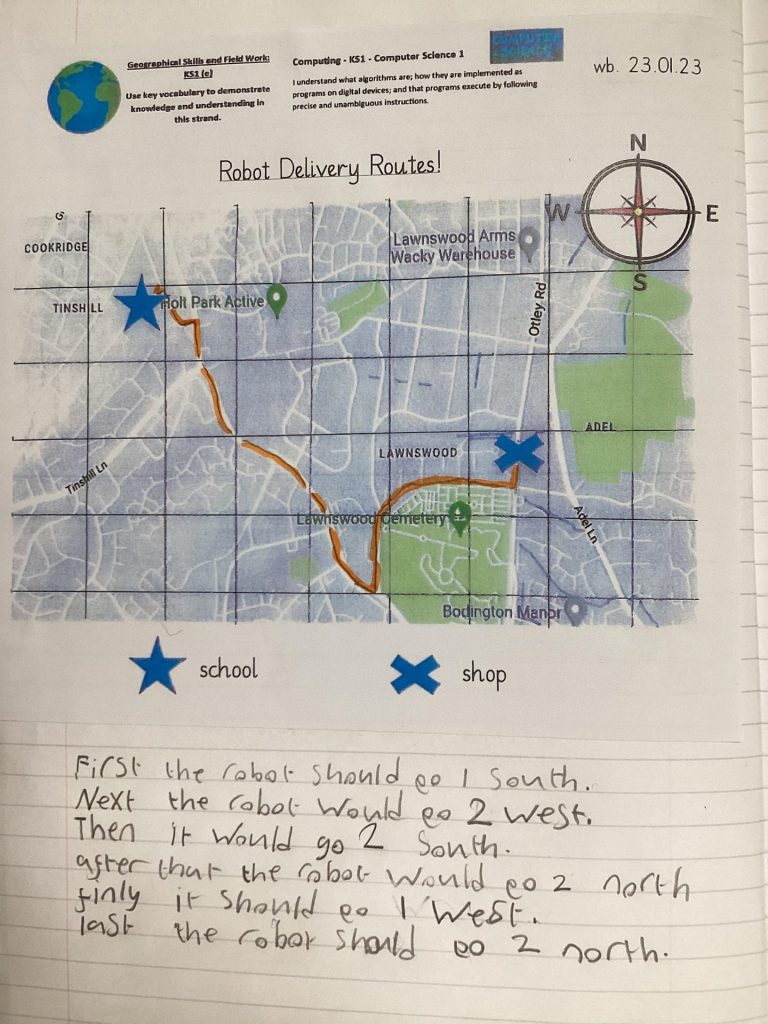 Geographical Skills and Field Work:
KS1 (e)
Use key vocabulary to demonstrate
knowledge and understanding in
this strand.
Computing - KS1 - Computer Science 1
I understand what algorithms are; how they are implemented as
programs on digital devices; and that programs execute by following
precise and unambiguous instructions.
COMPUTER
SCIENCE
wb. 23.01.23
Robot Delivery Routes!
N
W
E
S
COOKRIDGE
Lawnswood Arms
Wacky Warehouse
TINSHILL
Holt Park Active
Otley Rd
ADEL
LAWNSWOOD
Tinshill Ln
Lawnswood Cemetery
Adel Ln
Bodington Manor
school
shop
First the robot should go 1 South.
Next the robot would go 2 west.
Then it would go 2 South.
after that the robot would go 2 north
finly it should go 1 West.
last the robot should go 2 north.